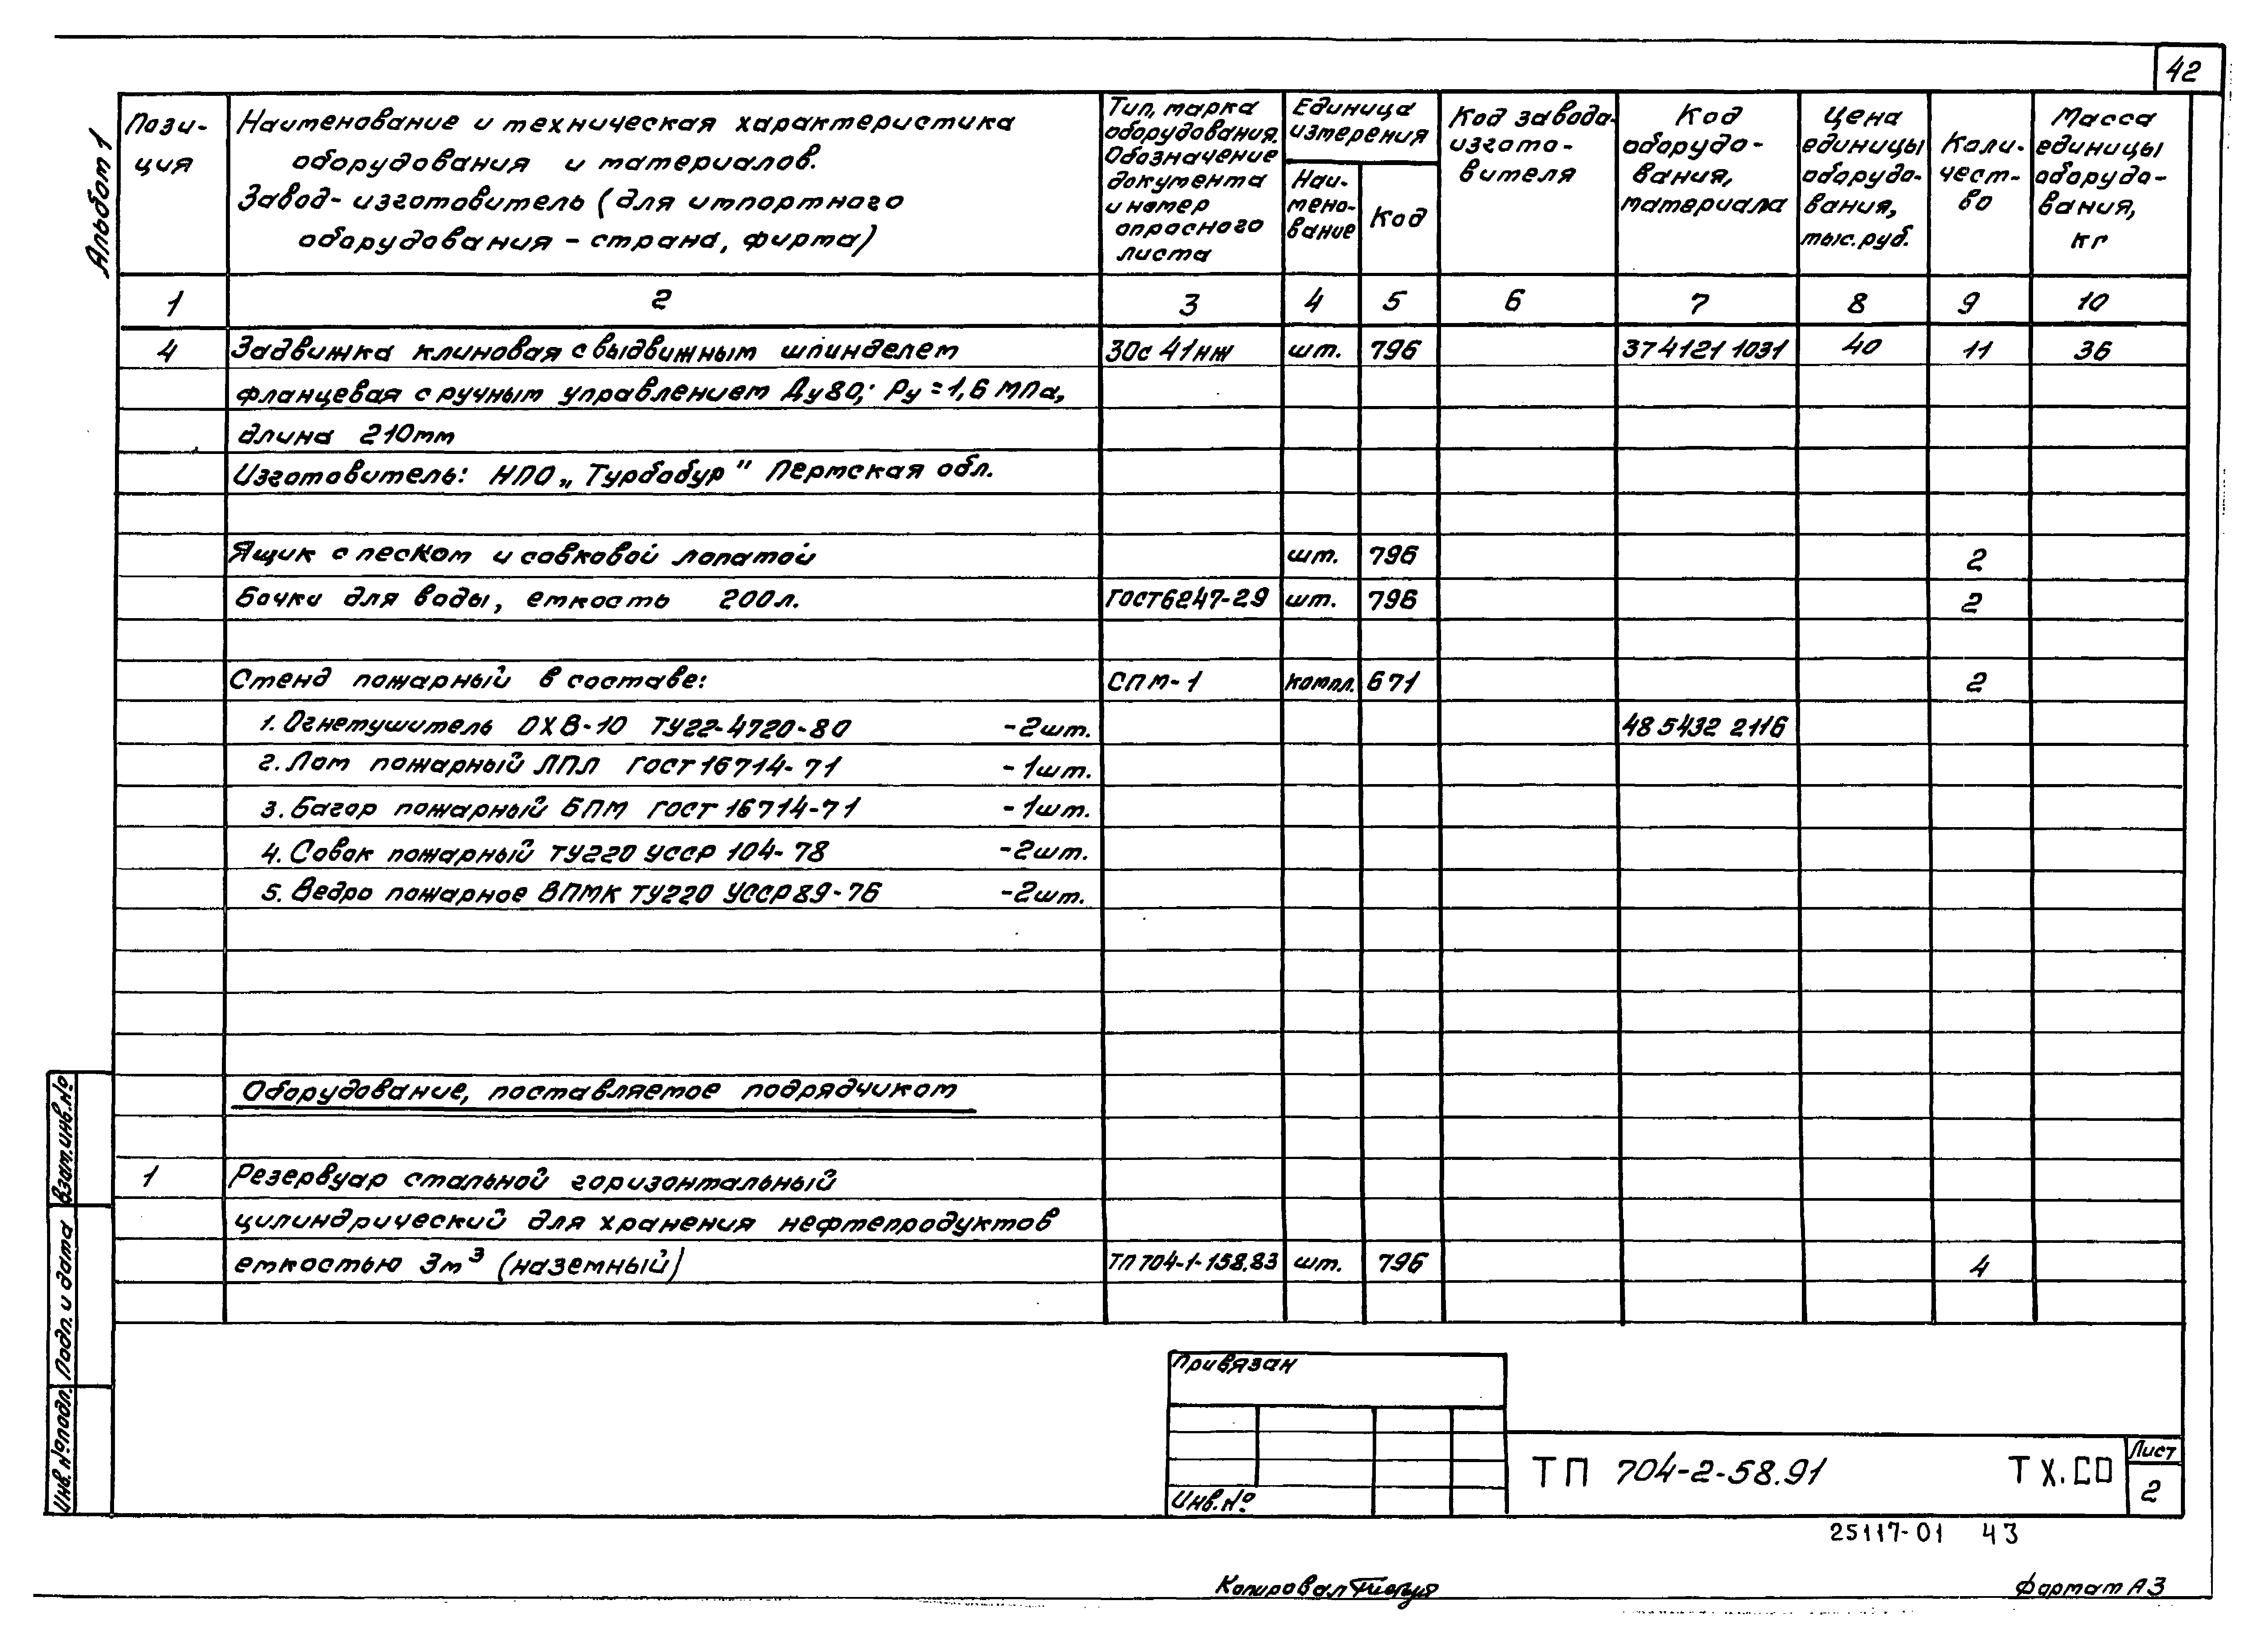 42
Альбом 1
Пози-
ция
Наименование и техническая характеристика
оборудования и материалов.
Завод-изготовитель (для импортного
оборудования - страна, фирма)
Тип, марка
оборудования.
Обозначение
документа
и номер
опросного
листа
Единица
измерения
Наи-
мено-
вание
Код
Код завода-
изгото-
вителя
Код
оборудо-
вания,
материала
Цена
единицы
оборудо-
вания,
тыс.руб.
Коли-
чест-
во
Масса
единицы
оборудо-
вания,
кг
1 2 3 4 5 6 7 8 9 10
4 Задвижка клиновая с выдвижным шпинделем 30с 41нж шт. 796 374121 1031 40 11 36
фланцевая с ручным управлением Ду80; Ру=1,6 МПа,
длина 210мм
Изготовитель: НПО „Турбобур" Пермская обл.
Ящик с песком и совковой лопатой шт. 796 2
Бочки для воды, емкость 200л. ГОСТ6247-29 шт. 796 2
Стенд пожарный в составе: СПМ-1 компл. 671 2
1. Огнетушитель ОХВ-10 ТУ22-4720-80 -2шт. 48 5432 2116
2. Лом пожарный ЛПЛ ГОСТ 16714-71 -1шт.
3. Багор пожарный БПМ ГОСТ 16714-71 -1шт.
4. Совок пожарный ТУ220 УССР 104-78 -2шт.
5. Ведро пожарное ВПМК ТУ220 УССР 89-76 -2шт.
Оборудование, поставляемое подрядчиком
1 Резервуар стальной горизонтальный
цилиндрический для хранения нефтепродуктов
емкостью 3м³ (наземный) ТП 704-1-158.83 шт. 796 4
Взам.инв.№
Подп. и дата
Инв.№подл.
Привязан
Инв.№
ТП 704-2-58.91 ТХ.СО
Лист
2
25117-01 43
Копировал
Формат А3